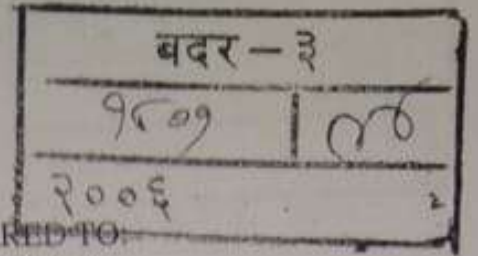 बदर - ३
१८०१
२००६ २
RED TO: